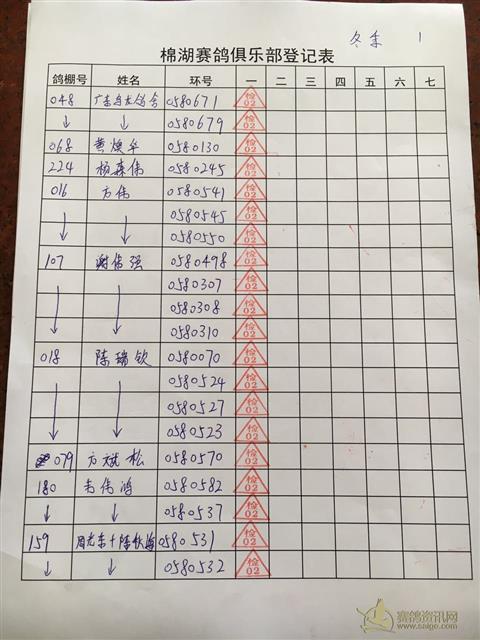 冬季 1
棉湖赛鸽俱乐部登记表
鸽棚号 姓名 环号 一 二 三 四 五 六 七
048 0580671 检02
↓ ↓ 0580679 检02
068 黄焕华 0580130 检02
224 杨森伟 0580245 检02
016 方伟 0580541 检02
0580545 检02
↓ ↓ 0580550 检02
107 谢伟强 0580498 检02
0580307 检02
0580308 检02
↓ ↓ 0580310 检02
018 陈瑞钦 0580070 检02
0580524 检02
0580527 检02
↓ ↓ 0580523 检02
079 方斌松 0580570 检02
180 韦伟鸿 0580582 检02
↓ ↓ 0580537 检02
159 0580531 检02
↓ ↓ 0580532 检02
赛鸽资讯网
www.saige.com